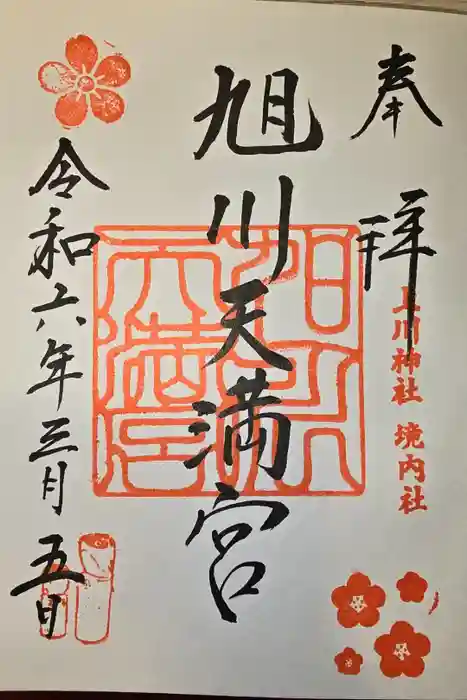 奉拝
上川神社 境内社
旭川天満宮
令和六年三月五日